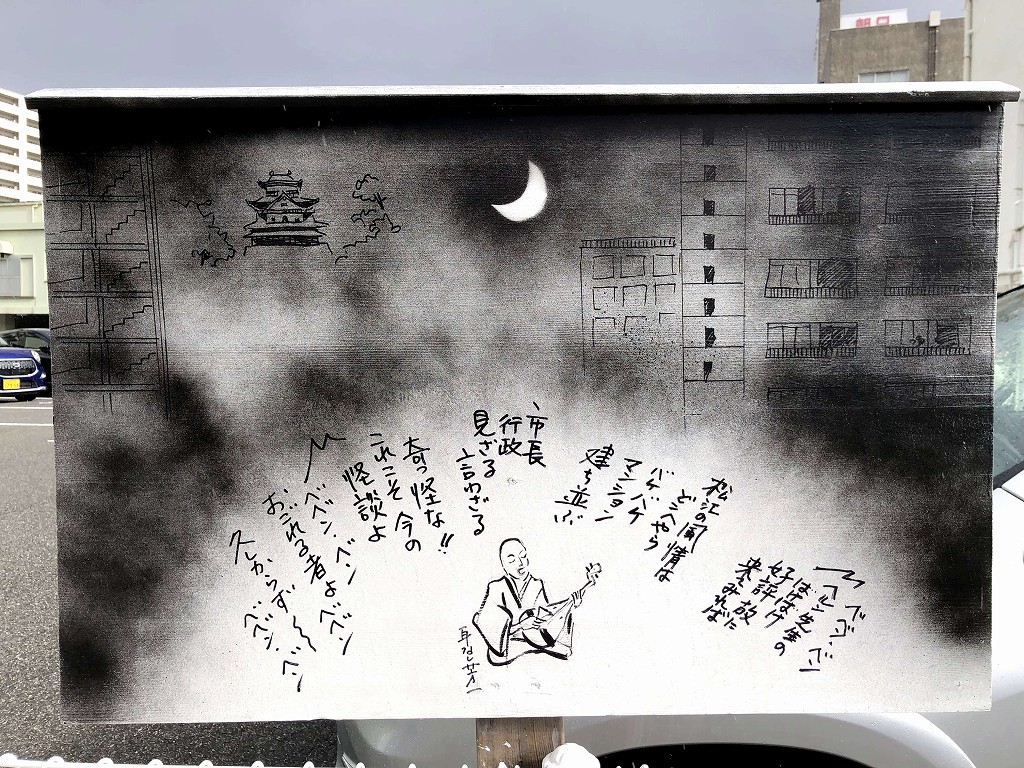 〽ベベン・ベン
ヘルン先生の
ばけばけ
好評故に
来てみれば
松江の風情は
どこへやら
バケバケ
マンション
建ち並ぶ
市長
行政
見ざる
言わざる
奇っ怪な!!
これこそ今の
怪談よ
〽ベベン・ベン
おごれる者よ ベベン
久しからず〜 ベベン・ベン
耳なし芳一